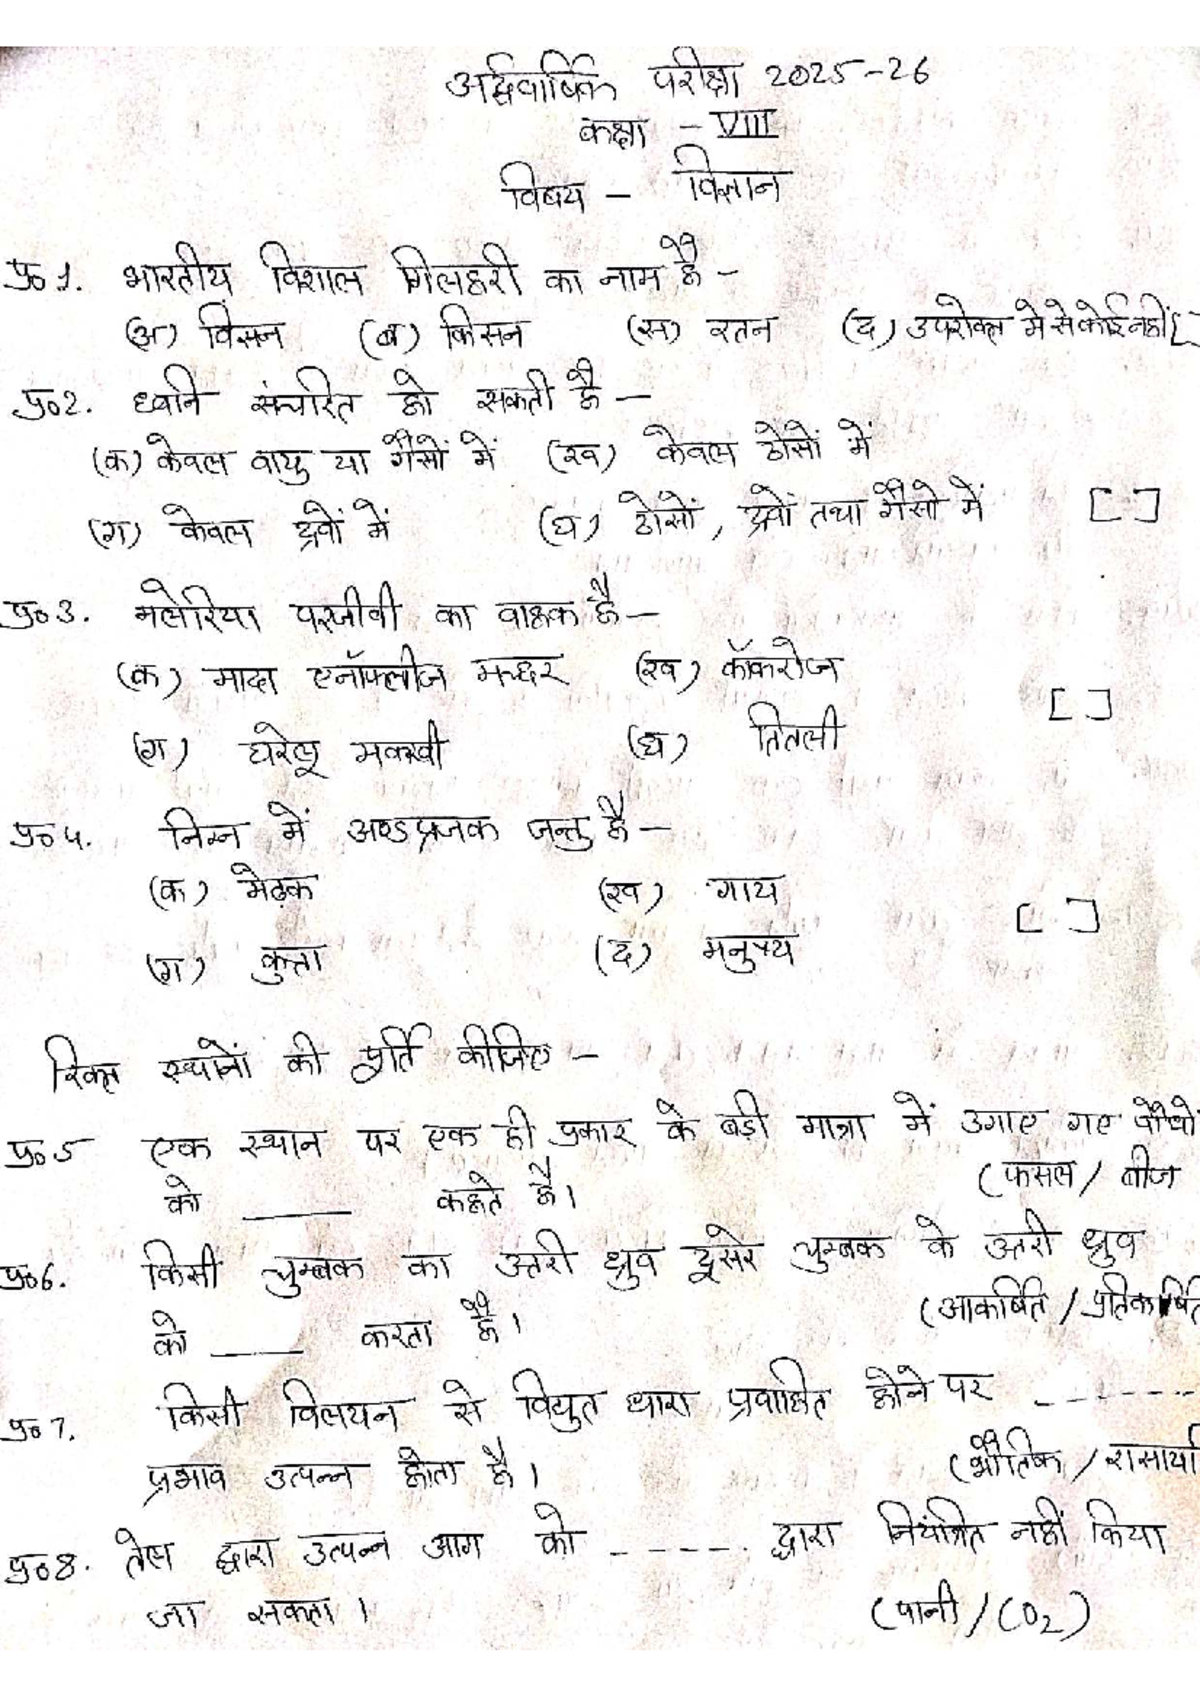 अर्द्धवार्षिक परीक्षा 2025-26
कक्षा - VIII
विषय - विज्ञान
प्र०1. भारतीय विशाल गिलहरी का नाम है -
(अ) विसन (ब) किसन (स) रतन (द) उपरोक्त मे से कोई नहीं [
प्र०2. ध्वनि संचरित हो सकती है -
(क) केवल वायु या गैसों में (ख) केवल ठोसों में
(ग) केवल द्रवों में (घ) ठोसों, द्रवों तथा गैसो में [ ]
प्र०3. मलेरिया परजीवी का वाहक है -
(क) मादा एनॉफ्लीज मच्छर (ख) कॉकरोज
(ग) घरेलू मक्खी (घ) तितली [ ]
प्र०4. निम्न में अण्डप्रजक जन्तु है -
(क) मेढ़क (ख) गाय
(ग) कुत्ता (द) मनुष्य [ ]
रिक्त स्थानों की पूर्ति कीजिए -
प्र०5 एक स्थान पर एक ही प्रकार के बड़ी मात्रा में उगाए गए पौधो
को ____ कहते है। (फसल / बीज
प्र०6. किसी चुम्बक का उत्तरी ध्रुव दूसरे चुम्बक के उत्तरी ध्रुव
को ____ करता है। (आकर्षित / प्रतिकर्षित
प्र०7. किसी विलयन से विद्युत धारा प्रवाहित होने पर ------
प्रभाव उत्पन्न होता है। (भौतिक / रासाय
प्र०8. तेल द्वारा उत्पन्न आग को ------ द्वारा नियंत्रित नहीं किया
जा सकता। (पानी / CO2)